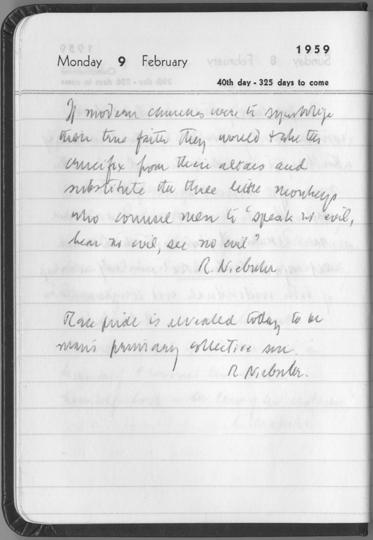 1959
Monday 9 February
40th day - 325 days to come
If modern churches were to symbolize
their true faith they would take the
crucifix from their altars and
substitute the three little monkeys
who counsel men to "speak no evil,
hear no evil, see no evil"
R. Niebuhr
Race pride is revealed today to be
man's primary collective sin.
R Niebuhr.